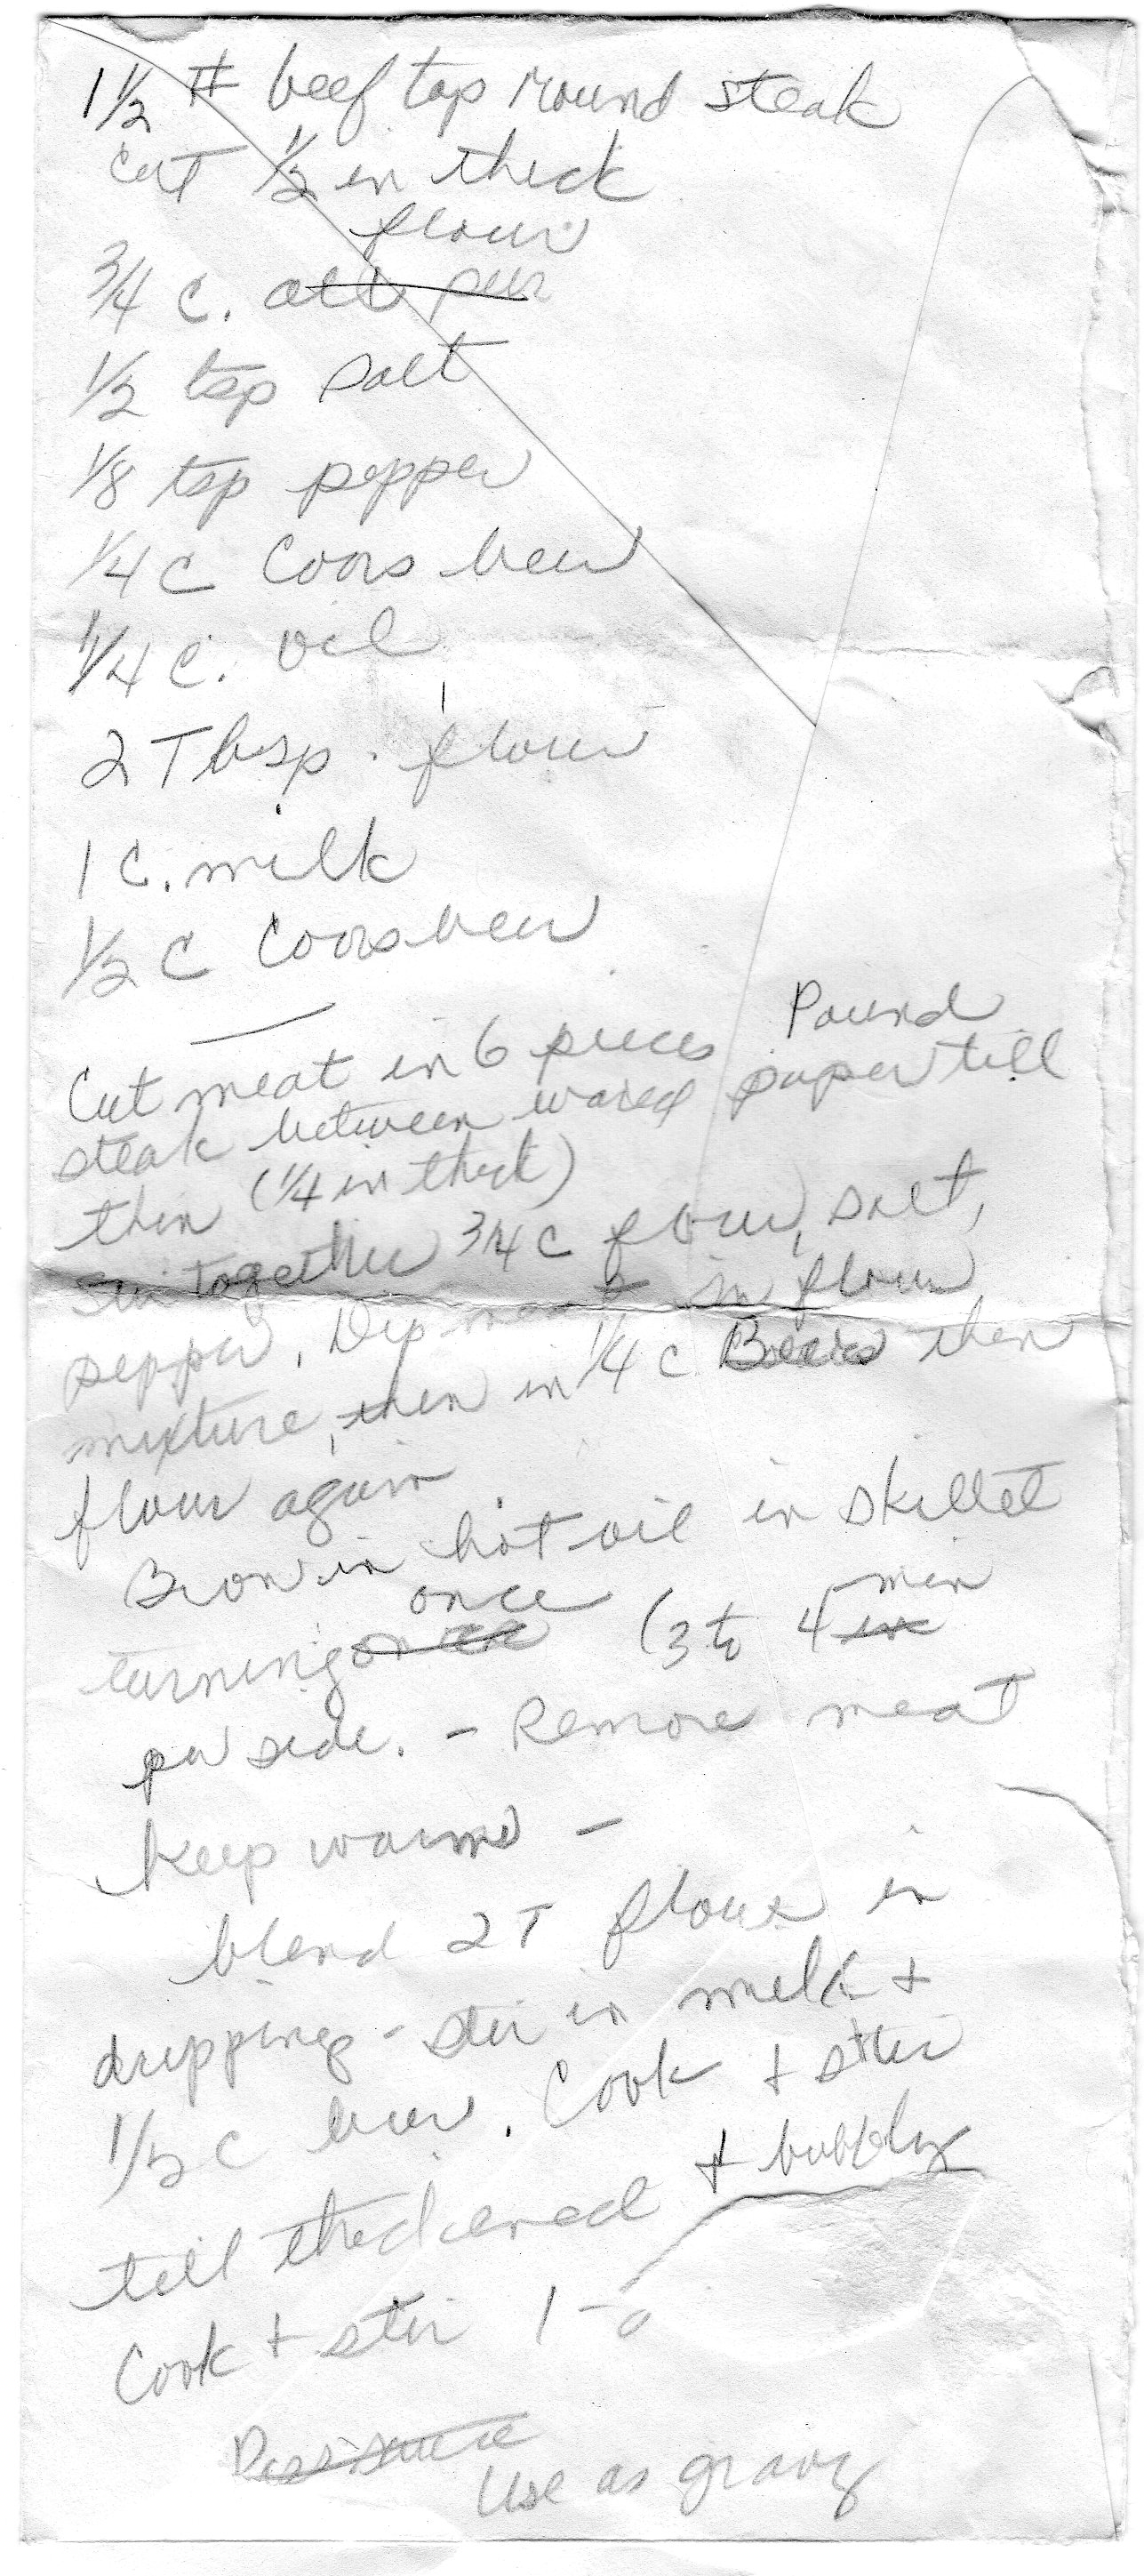 1 1/2 # beef top round steak
cut 1/2 in thick
flour
3/4 c. all pur
1/2 tsp salt
1/8 tsp pepper
1/4 c Coors beer
1/4 c. oil
2 Tbsp. flour
1 c. milk
1/2 c Coors beer
Cut meat in 6 pieces Pound
steak between waxed paper till
thin (1/4 in thick)
together 3/4 c flour, salt,
pepper. Dip meat in flour
mixture, then in 1/4 c Beer then
flour again
Brown in hot oil in skillet
once min
turning (3 to 4
per side. - Remove meat
keep warm -
blend 2 T flour in
drippings - stir in milk +
1/2 c beer. Cook + stir
till thickened + bubbly
Cook + stir 1 -
Use as gravy